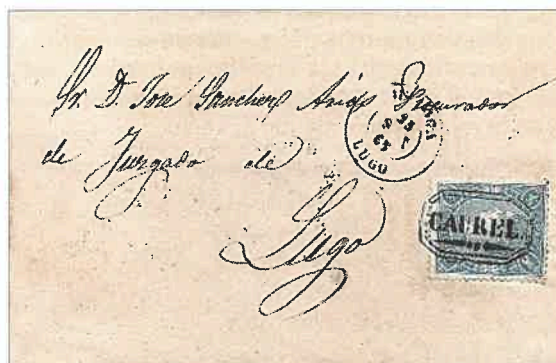 Sr. D. Jose Sanchez Arias Procurador
de Juzgado de
Lugo
LUGO
CAUREL